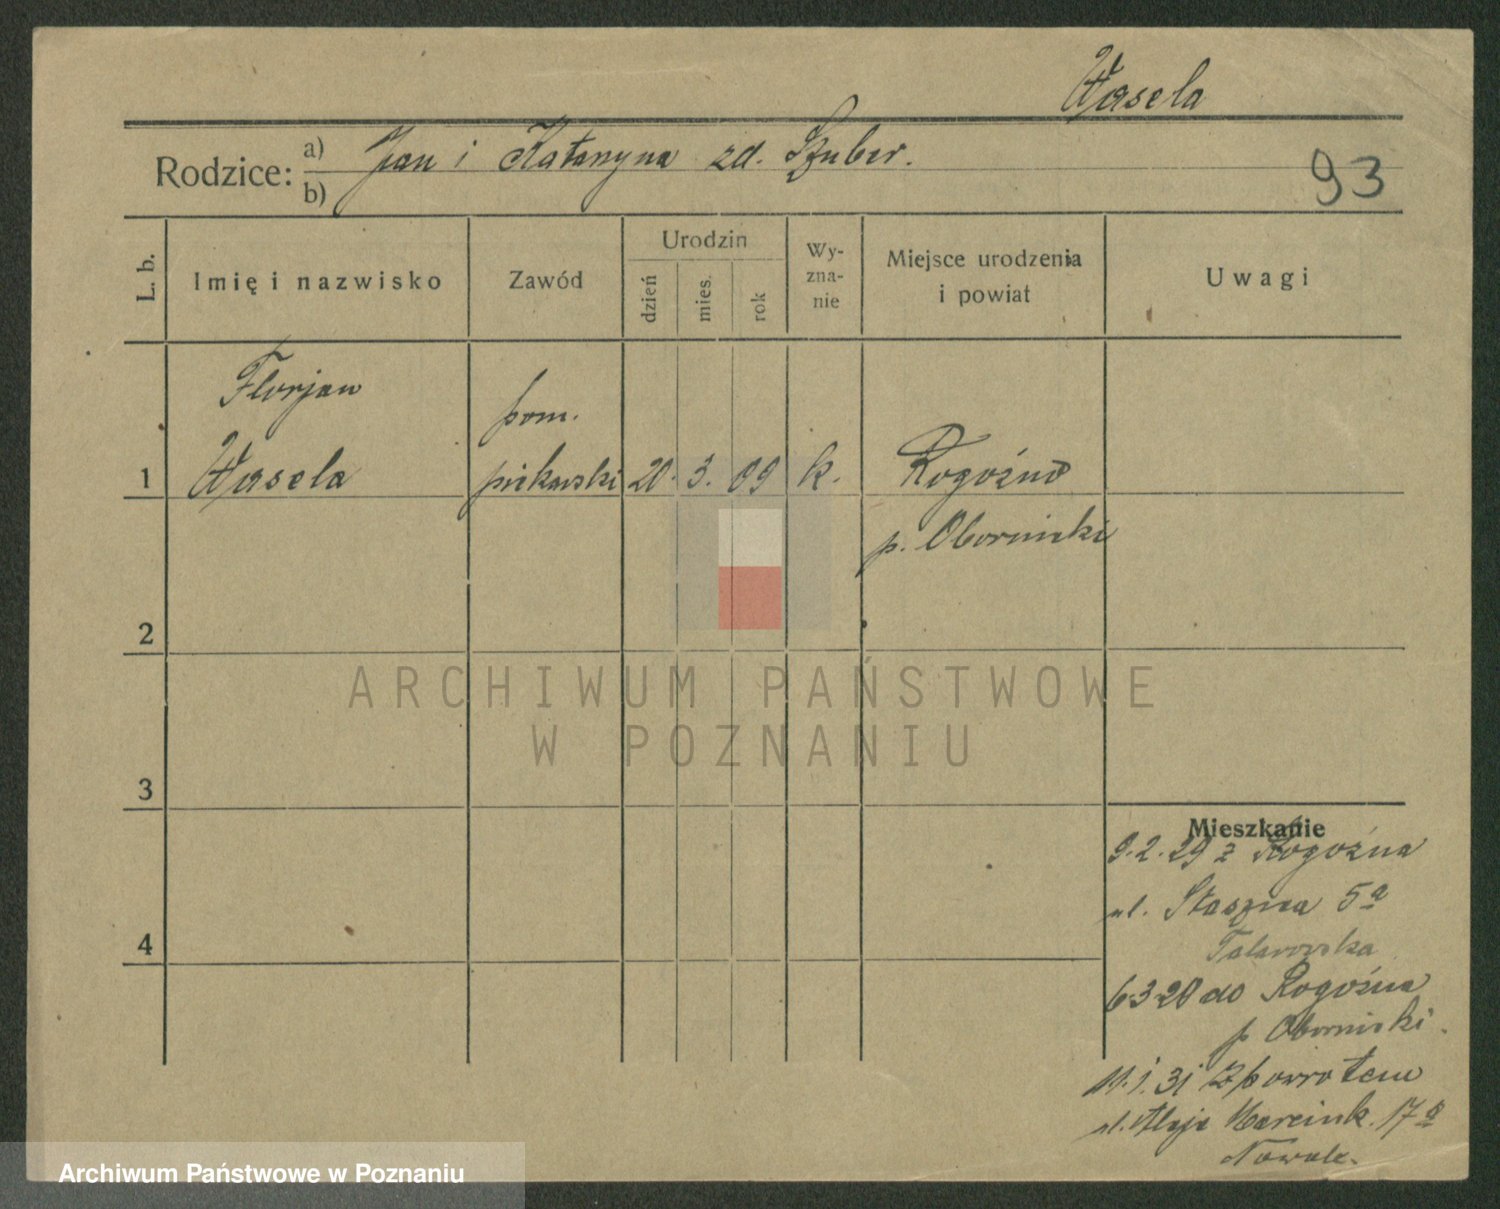 Wasela
Rodzice: a) Jan i Katarzyna zd. Szuber.
b)
93
L. b.
Imię i nazwisko
Zawód
Urodzin
dzień
mies.
rok
Wy-
zna-
nie
Miejsce urodzenia
i powiat
Uwagi
Florjan
pom.
1 Wasela piekarski 20. 3. 09 k. Rogoźno
p. Obornicki
2
3
4
Mieszkanie
9.2.29 z Rogoźna
ul. Staszica 5a
6 3 20 do Rogoźna
p Obornicki.
11.1.31 z powrotem
ul. Aleje Marcink. 17a
Nowak.
ARCHIWUM PAŃSTWOWE
W POZNANIU
Archiwum Państwowe w Poznaniu